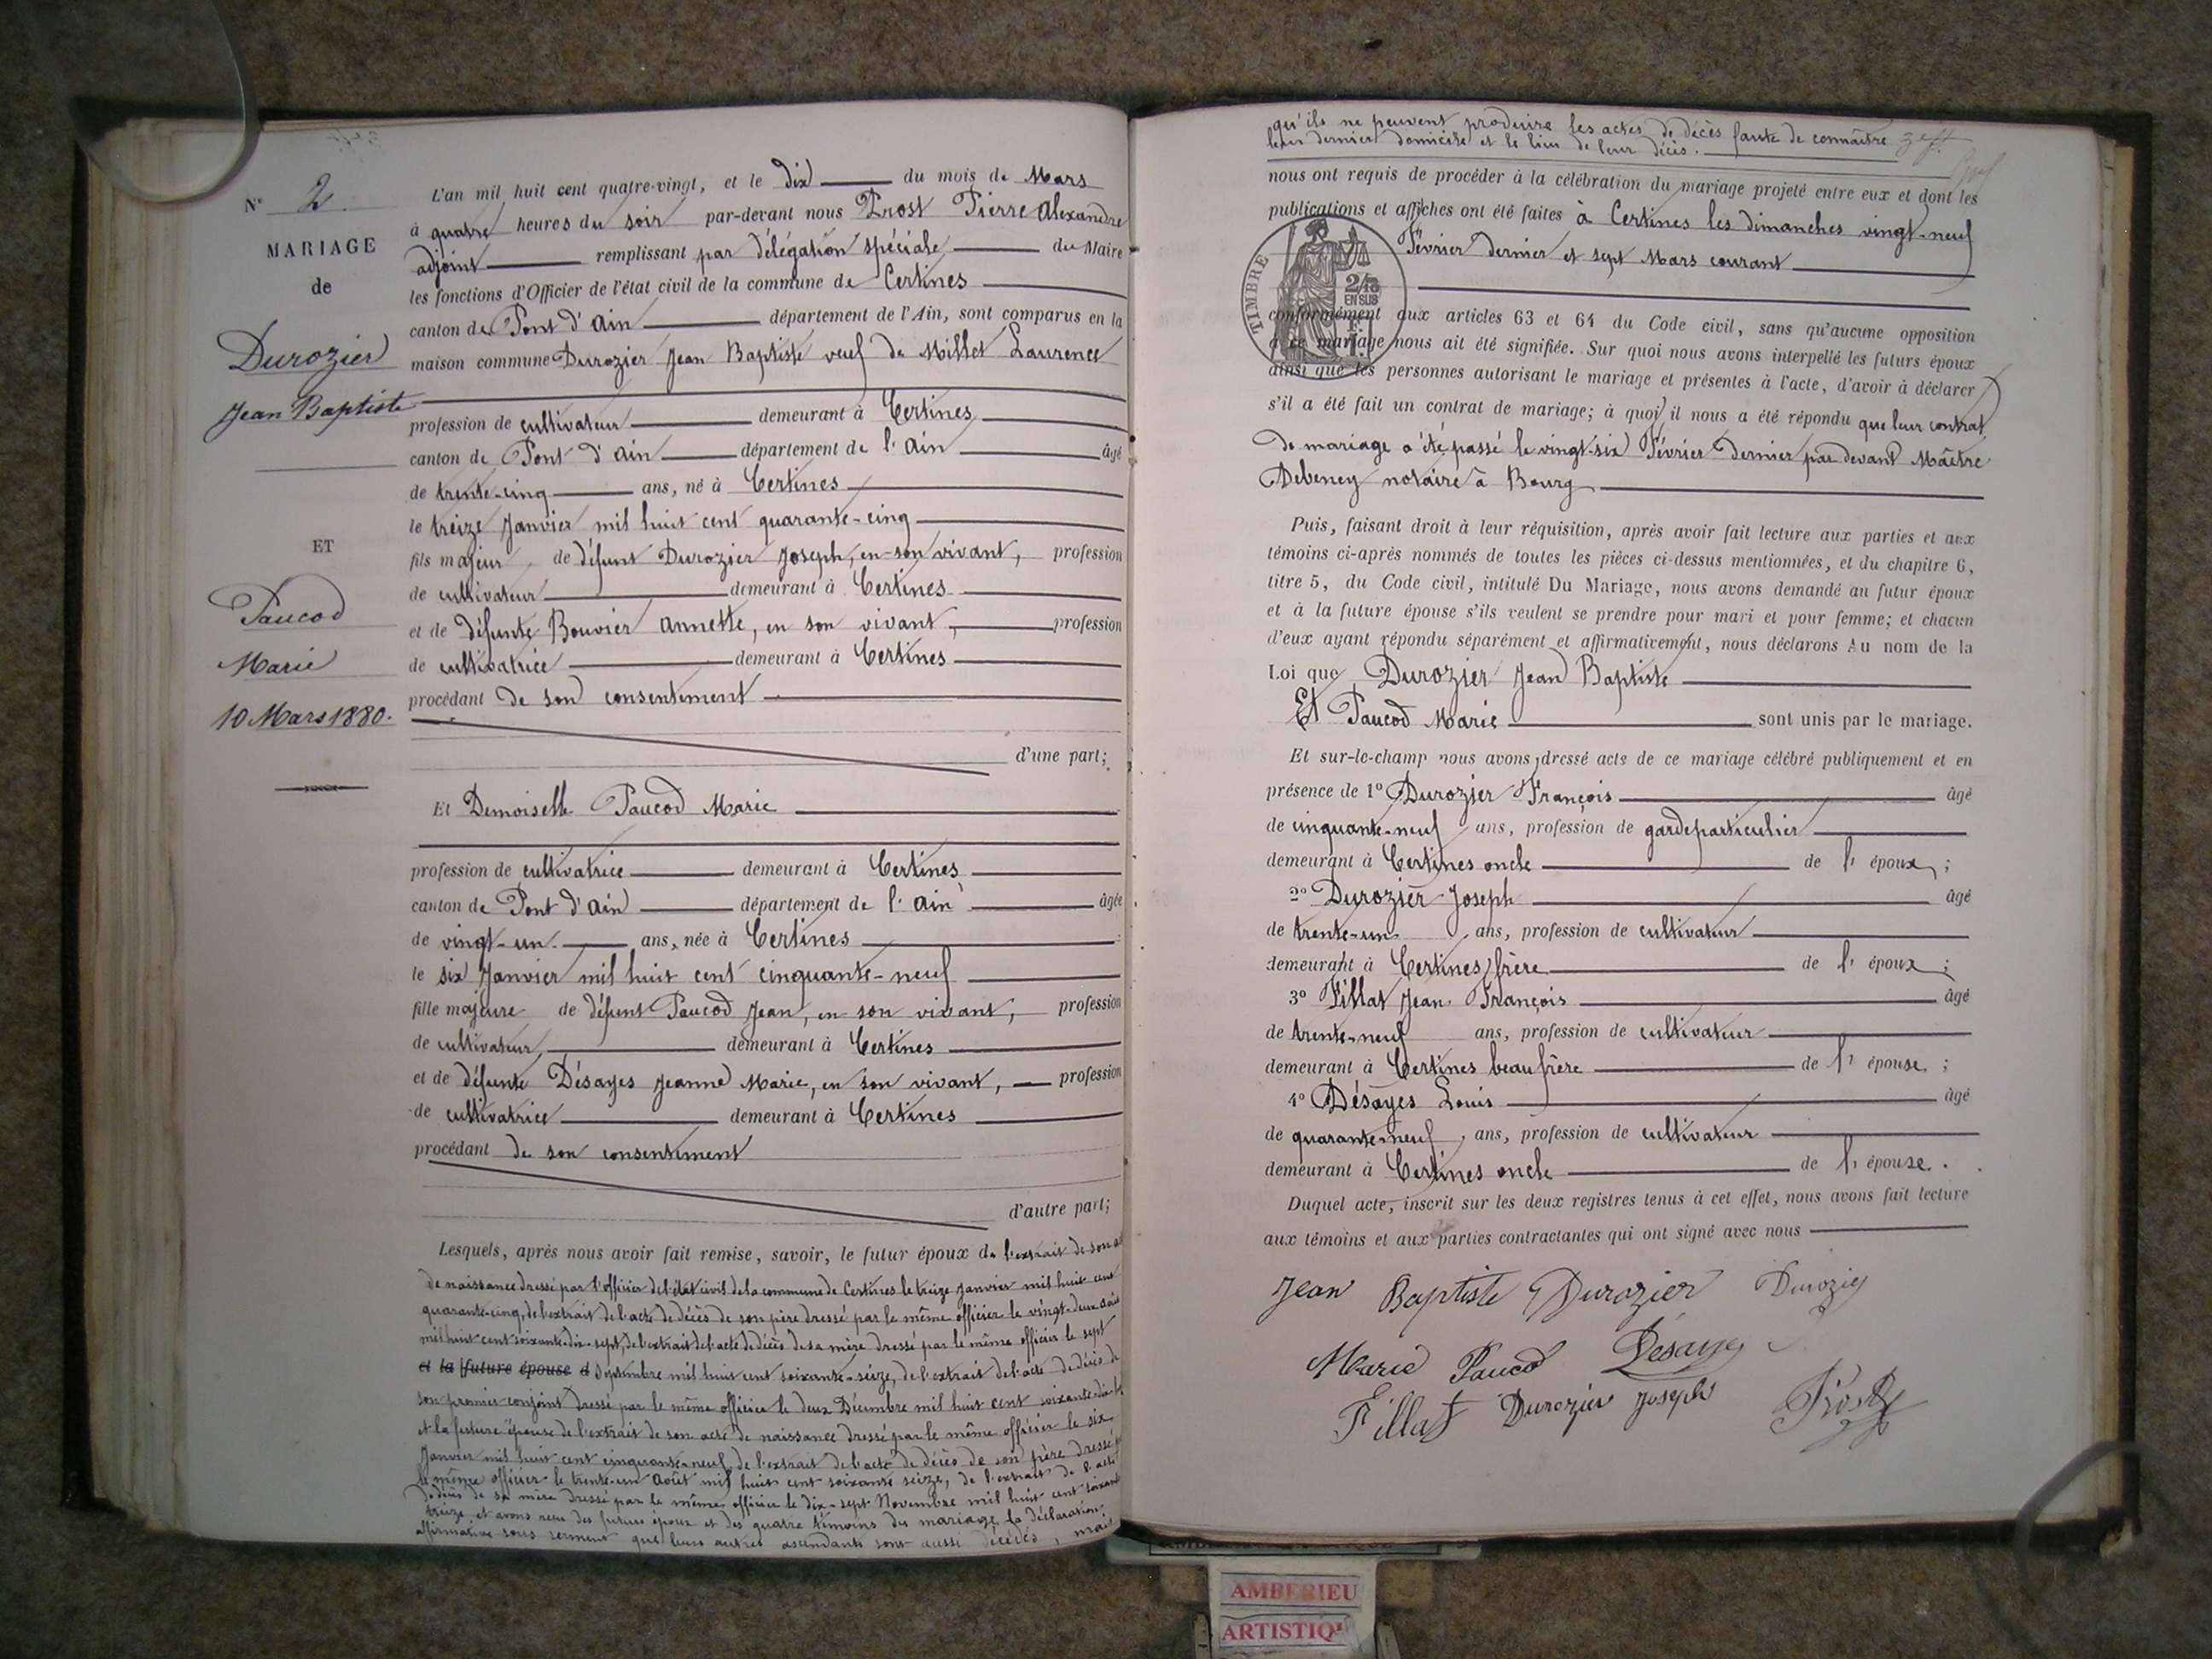 N° 2.
MARIAGE
de
Durozier
Jean Baptiste
ET
Paucod
Marie
10 Mars 1880.
L'an mil huit cent quatre-vingt, et le dix du mois de Mars
à quatre heures du soir par-devant nous Prost Pierre Alexandre
adjoint remplissant par délégation spéciale du Maire
les fonctions d'Officier de l'état civil de la commune de Certines
canton de Pont d'Ain département de l'Ain, sont comparus en la
maison commune Durozier Jean Baptiste veuf de Millet Laurence
profession de cultivateur demeurant à Certines
canton de Pont d'Ain département de l'Ain âgé
de trente-cinq ans, né à Certines
le treize Janvier mil huit cent quarante-cinq
fils majeur de défunt Durozier Joseph, en son vivant, profession
de cultivateur demeurant à Certines
et de défunte Bouvier Annette, en son vivant, profession
de cultivatrice demeurant à Certines
procédant de son consentement
d'une part;
Et Demoiselle Paucod Marie
profession de cultivatrice demeurant à Certines
canton de Pont d'Ain département de l'Ain âgée
de vingt-un ans, née à Certines
le six Janvier mil huit cent cinquante-neuf
fille majeure de défunt Paucod Jean, en son vivant, profession
de cultivateur, demeurant à Certines
et de défunte Désayes Jeanne Marie, en son vivant, profession
de cultivatrice demeurant à Certines
procédant de son consentement
d'autre part;
Lesquels, après nous avoir fait remise, savoir, le futur époux de l'extrait de son
de naissance dressé par l'officier de l'état civil de la commune de Certines le treize Janvier mil huit cent
quarante-cinq, de l'extrait de l'acte de décès de son père dressé par le même officier le vingt-deux
mil huit cent soixante-dix-sept, de l'extrait de l'acte de décès de sa mère dressé par le même officier le sept
et la future épouse d Septembre mil huit cent soixante-seize, de l'extrait de l'acte de décès de
son premier conjoint dressé par le même officier le deux Décembre mil huit cent
et la future épouse de l'extrait de son acte de naissance dressé par le même officier le six
Janvier mil huit cent cinquante-neuf, de l'extrait de l'acte de décès de son père dressé
le même officier le trente-un Août mil huit cent soixante seize, de l'extrait de l'acte
de décès de sa mère dressé par le même officier le dix-sept Novembre mil huit cent soixante
treize, et avons reçu des futurs époux et des quatre témoins du mariage la déclaration
affirmative sous serment que leurs autres ascendants sont aussi décédés, mais
qu'ils ne peuvent produire les actes de décès faute de connaître
leur dernier domicile et le lieu de leur décès.
nous ont requis de procéder à la célébration du mariage projeté entre eux et dont les
publications et affiches ont été faites à Certines les dimanches vingt-neuf
Février dernier et sept Mars courant
TIMBRE
2/10
EN SUS
conformément aux articles 63 et 64 du Code civil, sans qu'aucune opposition
à ce mariage nous ait été signifiée. Sur quoi nous avons interpellé les futurs époux
ainsi que les personnes autorisant le mariage et présentes à l'acte, d'avoir à déclarer
s'il a été fait un contrat de mariage; à quoi il nous a été répondu que leur contrat
de mariage a été passé le vingt-six Février dernier par devant Maître
Debeney notaire à Bourg
Puis, faisant droit à leur réquisition, après avoir fait lecture aux parties et aux
témoins ci-après nommés de toutes les pièces ci-dessus mentionnées, et du chapitre 6,
titre 5, du Code civil, intitulé Du Mariage, nous avons demandé au futur époux
et à la future épouse s'ils veulent se prendre pour mari et pour femme; et chacun
d'eux ayant répondu séparément et affirmativement, nous déclarons Au nom de la
Loi que Durozier Jean Baptiste
Et Paucod Marie sont unis par le mariage.
Et sur-le-champ nous avons dressé acte de ce mariage célébré publiquement et en
présence de 1° Durozier François âgé
de cinquante-neuf ans, profession de garde particulier
demeurant à Certines oncle de l'époux;
2° Durozier Joseph âgé
de trente-un ans, profession de cultivateur
demeurant à Certines frère de l'époux;
3° Fillat Jean François âgé
de trente-neuf ans, profession de cultivateur
demeurant à Certines beau frère de l'épouse;
4° Désayes Louis âgé
de quarante-neuf ans, profession de cultivateur
demeurant à Certines oncle de l'épouse.
Duquel acte, inscrit sur les deux registres tenus à cet effet, nous avons fait lecture
aux témoins et aux parties contractantes qui ont signé avec nous
Jean Baptiste Durozier Durozier
Marie Paucod Désayes
Fillat Durozier Joseph Prost
AMBERIEU
ARTISTIQ